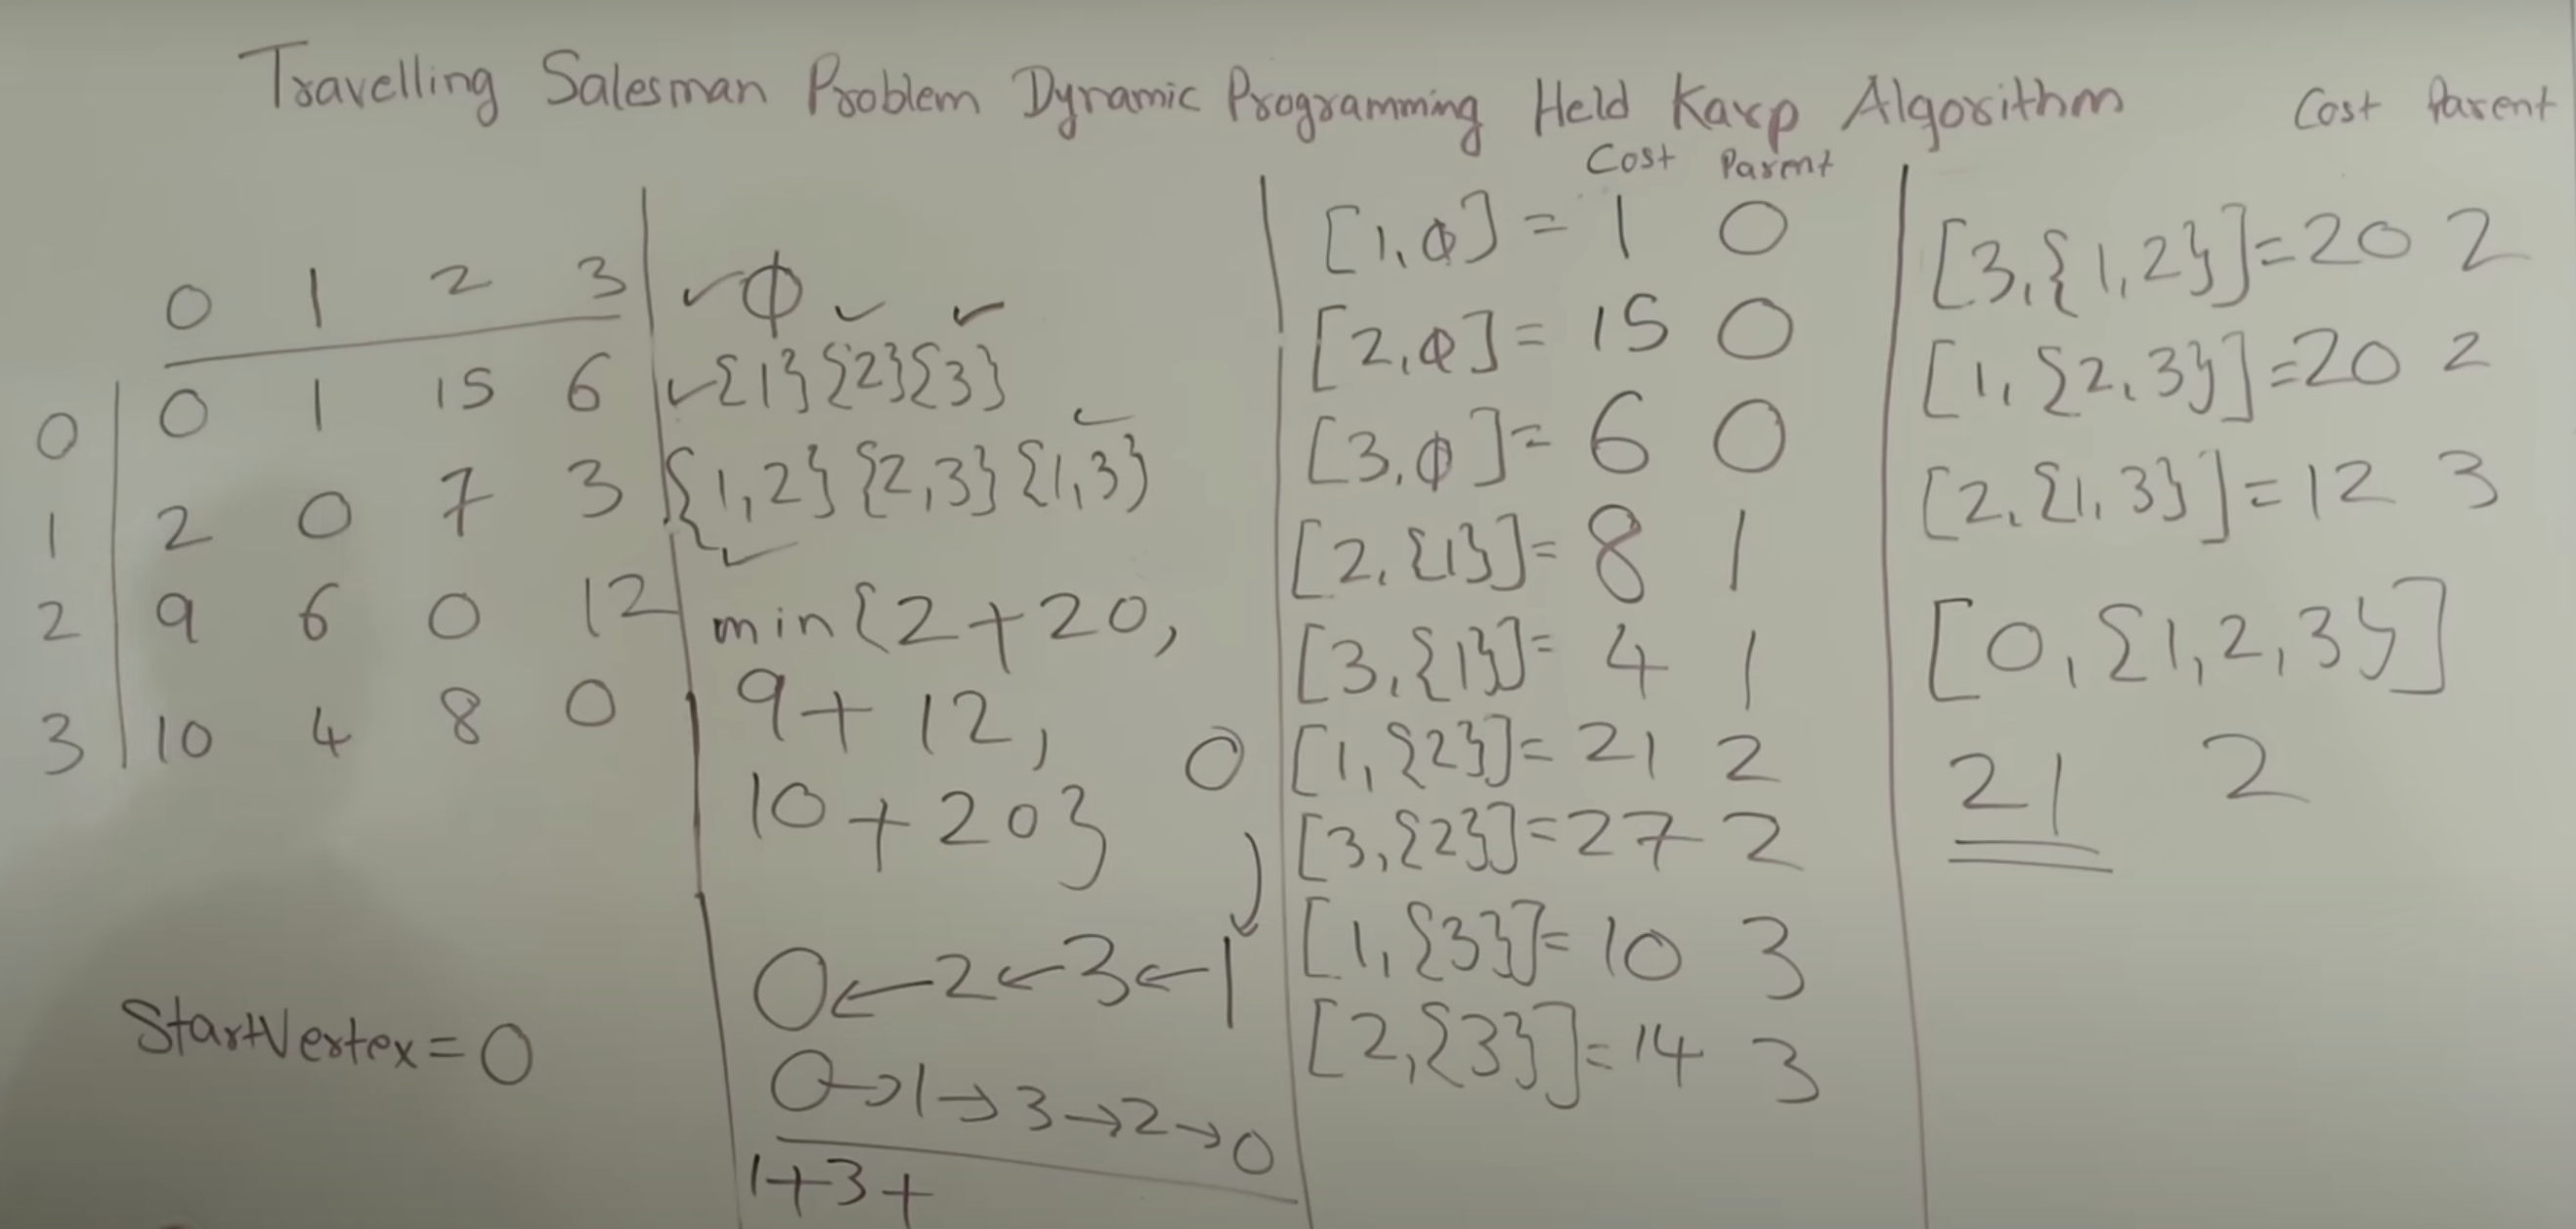 Travelling Salesman Problem Dynamic Programming Held Karp Algorithm
0 1 2 3
0 0 1 15 6
1 2 0 7 3
2 9 6 0 12
3 10 4 8 0
StartVertex = 0
✓ϕ ✓ ✓
✓{1}{2}{3}
{1,2} {2,3} {1,3}
min{2+20,
9+12,
10+20}
0
0←2←3←1
0→1→3→2→0
1+3+
Cost Parent
[1,ϕ] = 1 0
[2,ϕ] = 15 0
[3,ϕ] = 6 0
[2,{1}] = 8 1
[3,{1}] = 4 1
[1,{2}] = 21 2
[3,{2}] = 27 2
[1,{3}] = 10 3
[2,{3}] = 14 3
Cost Parent
[3,{1,2}] = 20 2
[1,{2,3}] = 20 2
[2,{1,3}] = 12 3
[0,{1,2,3}]
21 2